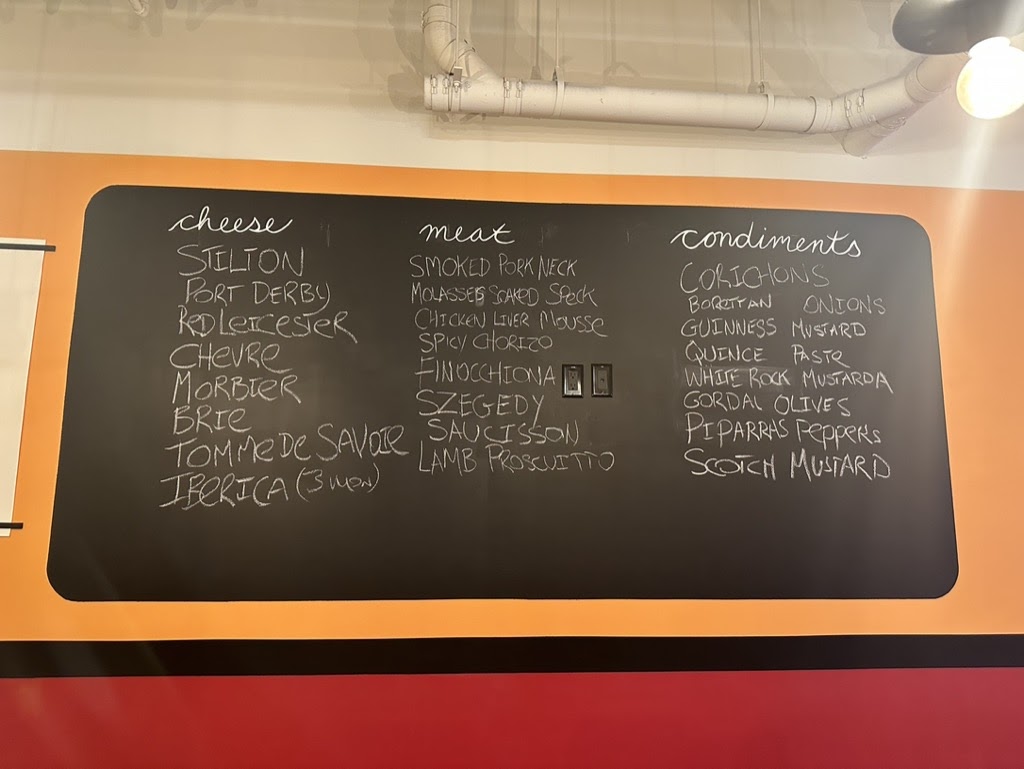 cheese
STILTON
PORT DERBY
RED LEICESTER
CHEVRE
MORBIER
BRIE
TOMME DE SAVOIE
IBERICA (3 MILK)
meat
SMOKED PORK NECK
MOLASSES SOAKED SPECK
CHICKEN LIVER MOUSSE
SPICY CHORIZO
FINOCCHIONA
SZEGEDY
SAUCISSON
LAMB PROSCUITTO
condiments
CORICHONS
BORETTAN ONIONS
GUINNESS MUSTARD
QUINCE PASTE
WHITE ROCK MUSTARDA
GORDAL OLIVES
PIPARRAS PEPPERS
SCOTCH MUSTARD